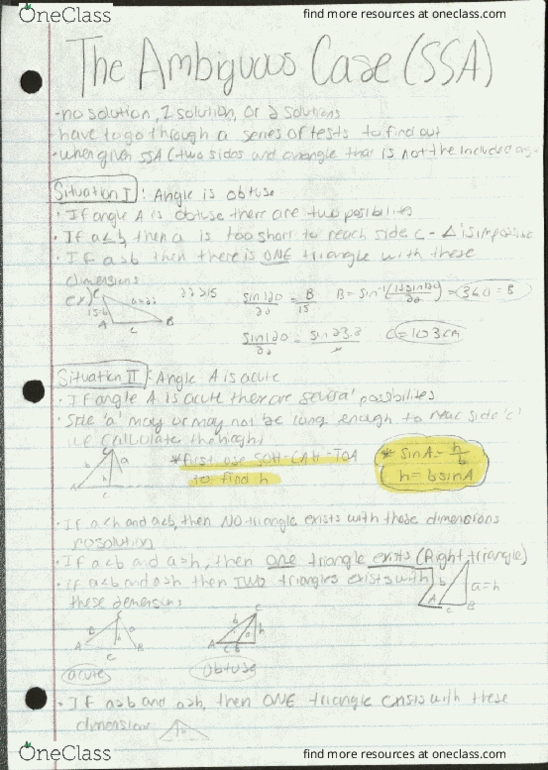 OneClass
find more resources at oneclass.com
The Ambiguous Case (SSA)
- no solution, 1 solution, or 2 solutions
- have to go through a series of tests to find out
- when given SSA (two sides and an angle that is not the included
Situation I: Angle is obtuse
· If angle A is obtuse there are two posibilies
· If a<b, then a is too short to reach side c - Δ is impossible
· If a>b then there is ONE triangle with these
dimensions
ex) C a=22 22>15
15=b A c B
sin120/22 = B/15 B= sin⁻¹ = 36.0 = B
sin120/22 = c= 10.3cm
Situation II: Angle A is acute
· If angle A is acute there are several possibilities
· Side 'a' may or may not be long enough to reach side 'c'
calculate the height
b h a
A c
* first use SOH-CAH-TOA
to find h
* sinA = h/b
h = bsinA
· If a<h and a<b, then NO triangle exists with these dimensions
· If a<b and a=h, then one triangle exists (Right triangle)
· if a<b and a>h then TWO triangles exists with
these
b a=h
A c B
A B
C
acute
obtuse
· If a>b and a>h, then ONE triangle exists with these
dimensions
OneClass
find more resources at oneclass.com